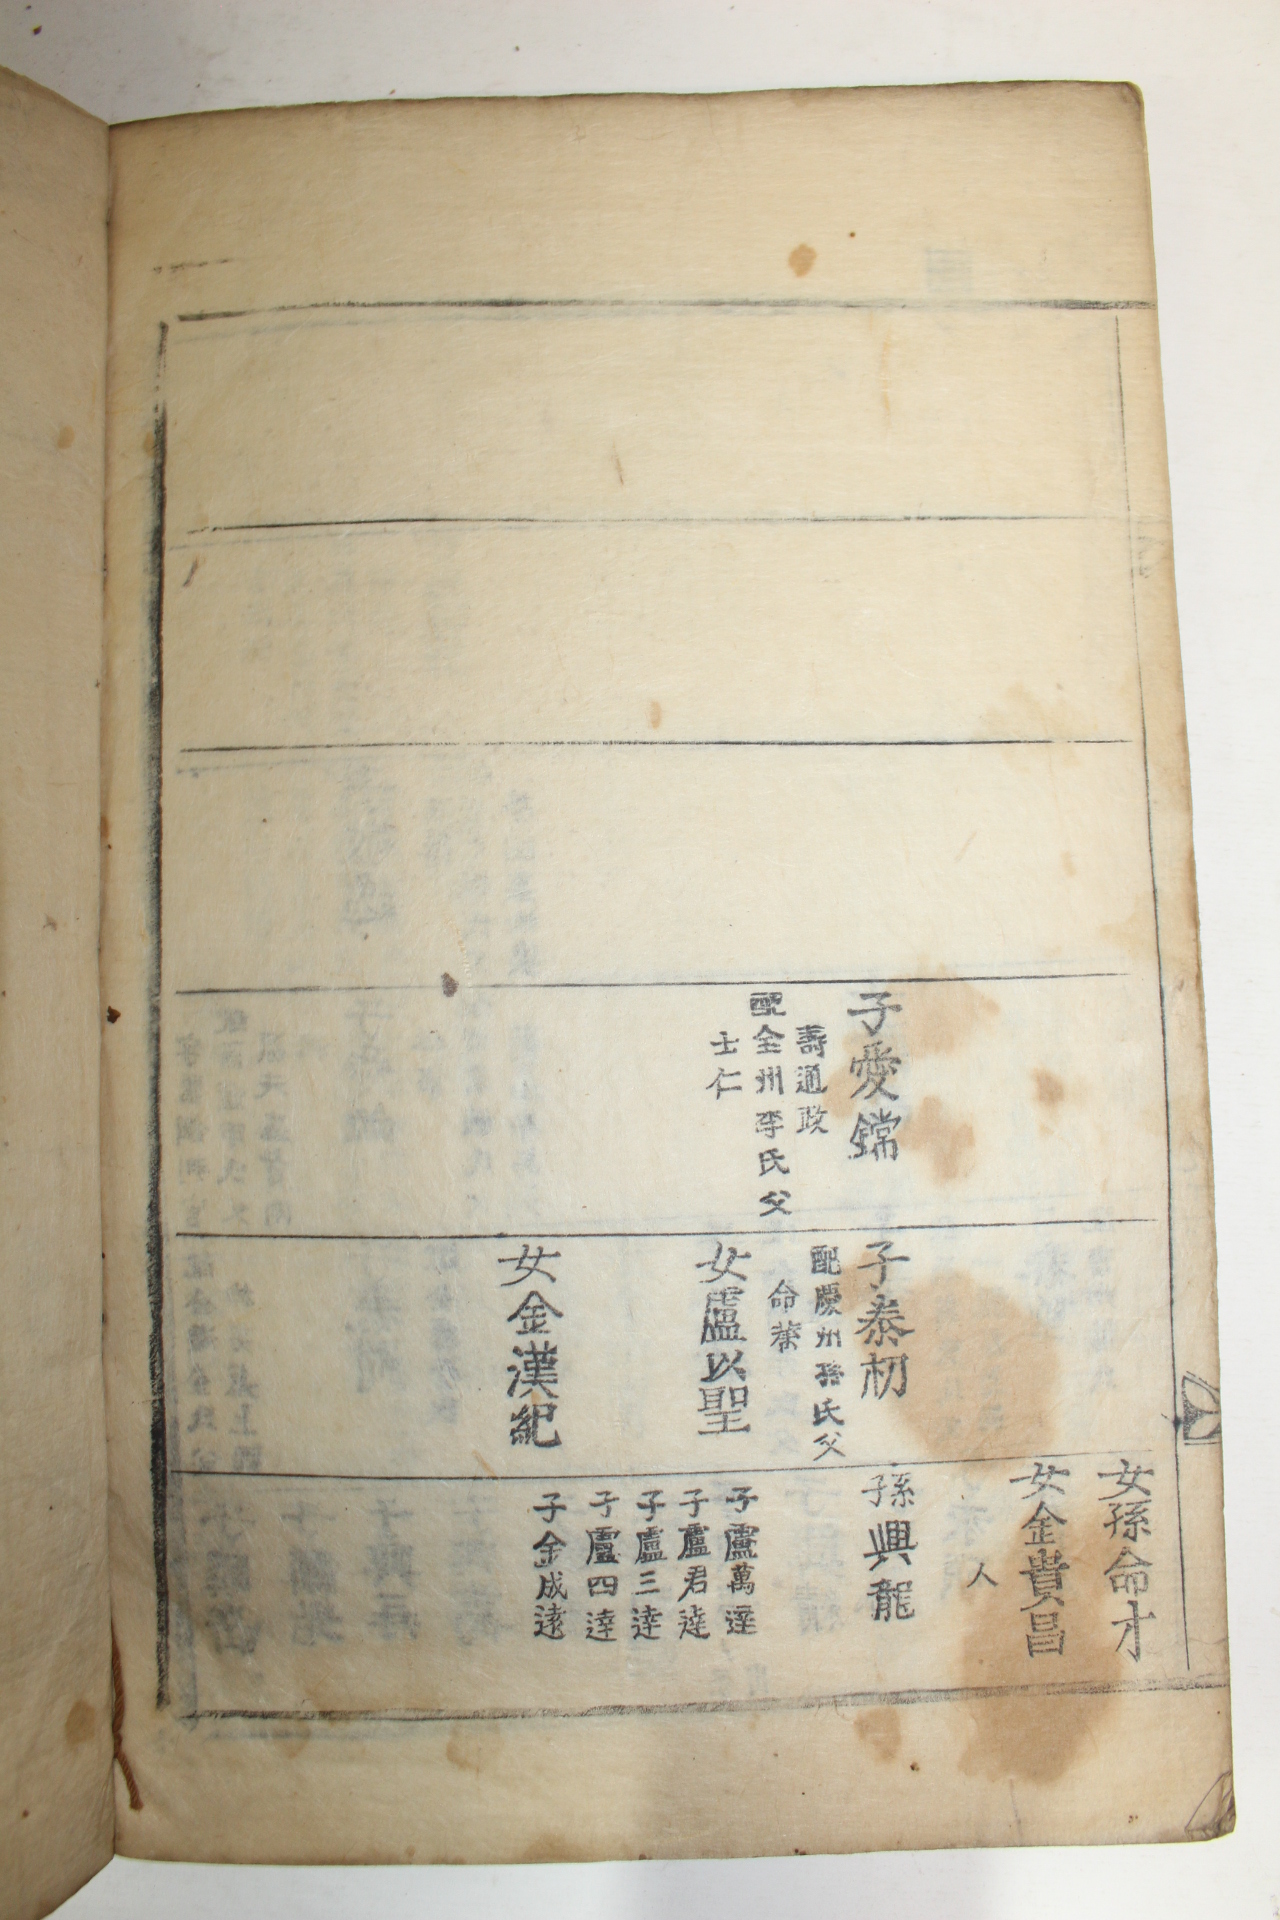 子愛鐺
壽通政
配全州李氏父
士仁
子泰㓞
配慶州孫氏父
命業
女盧以聖
女金漢紀
女孫命才
女金貴昌
人
孫興龍
子盧萬逹
子盧君逹
子盧三逹
子盧四逹
子金成遠